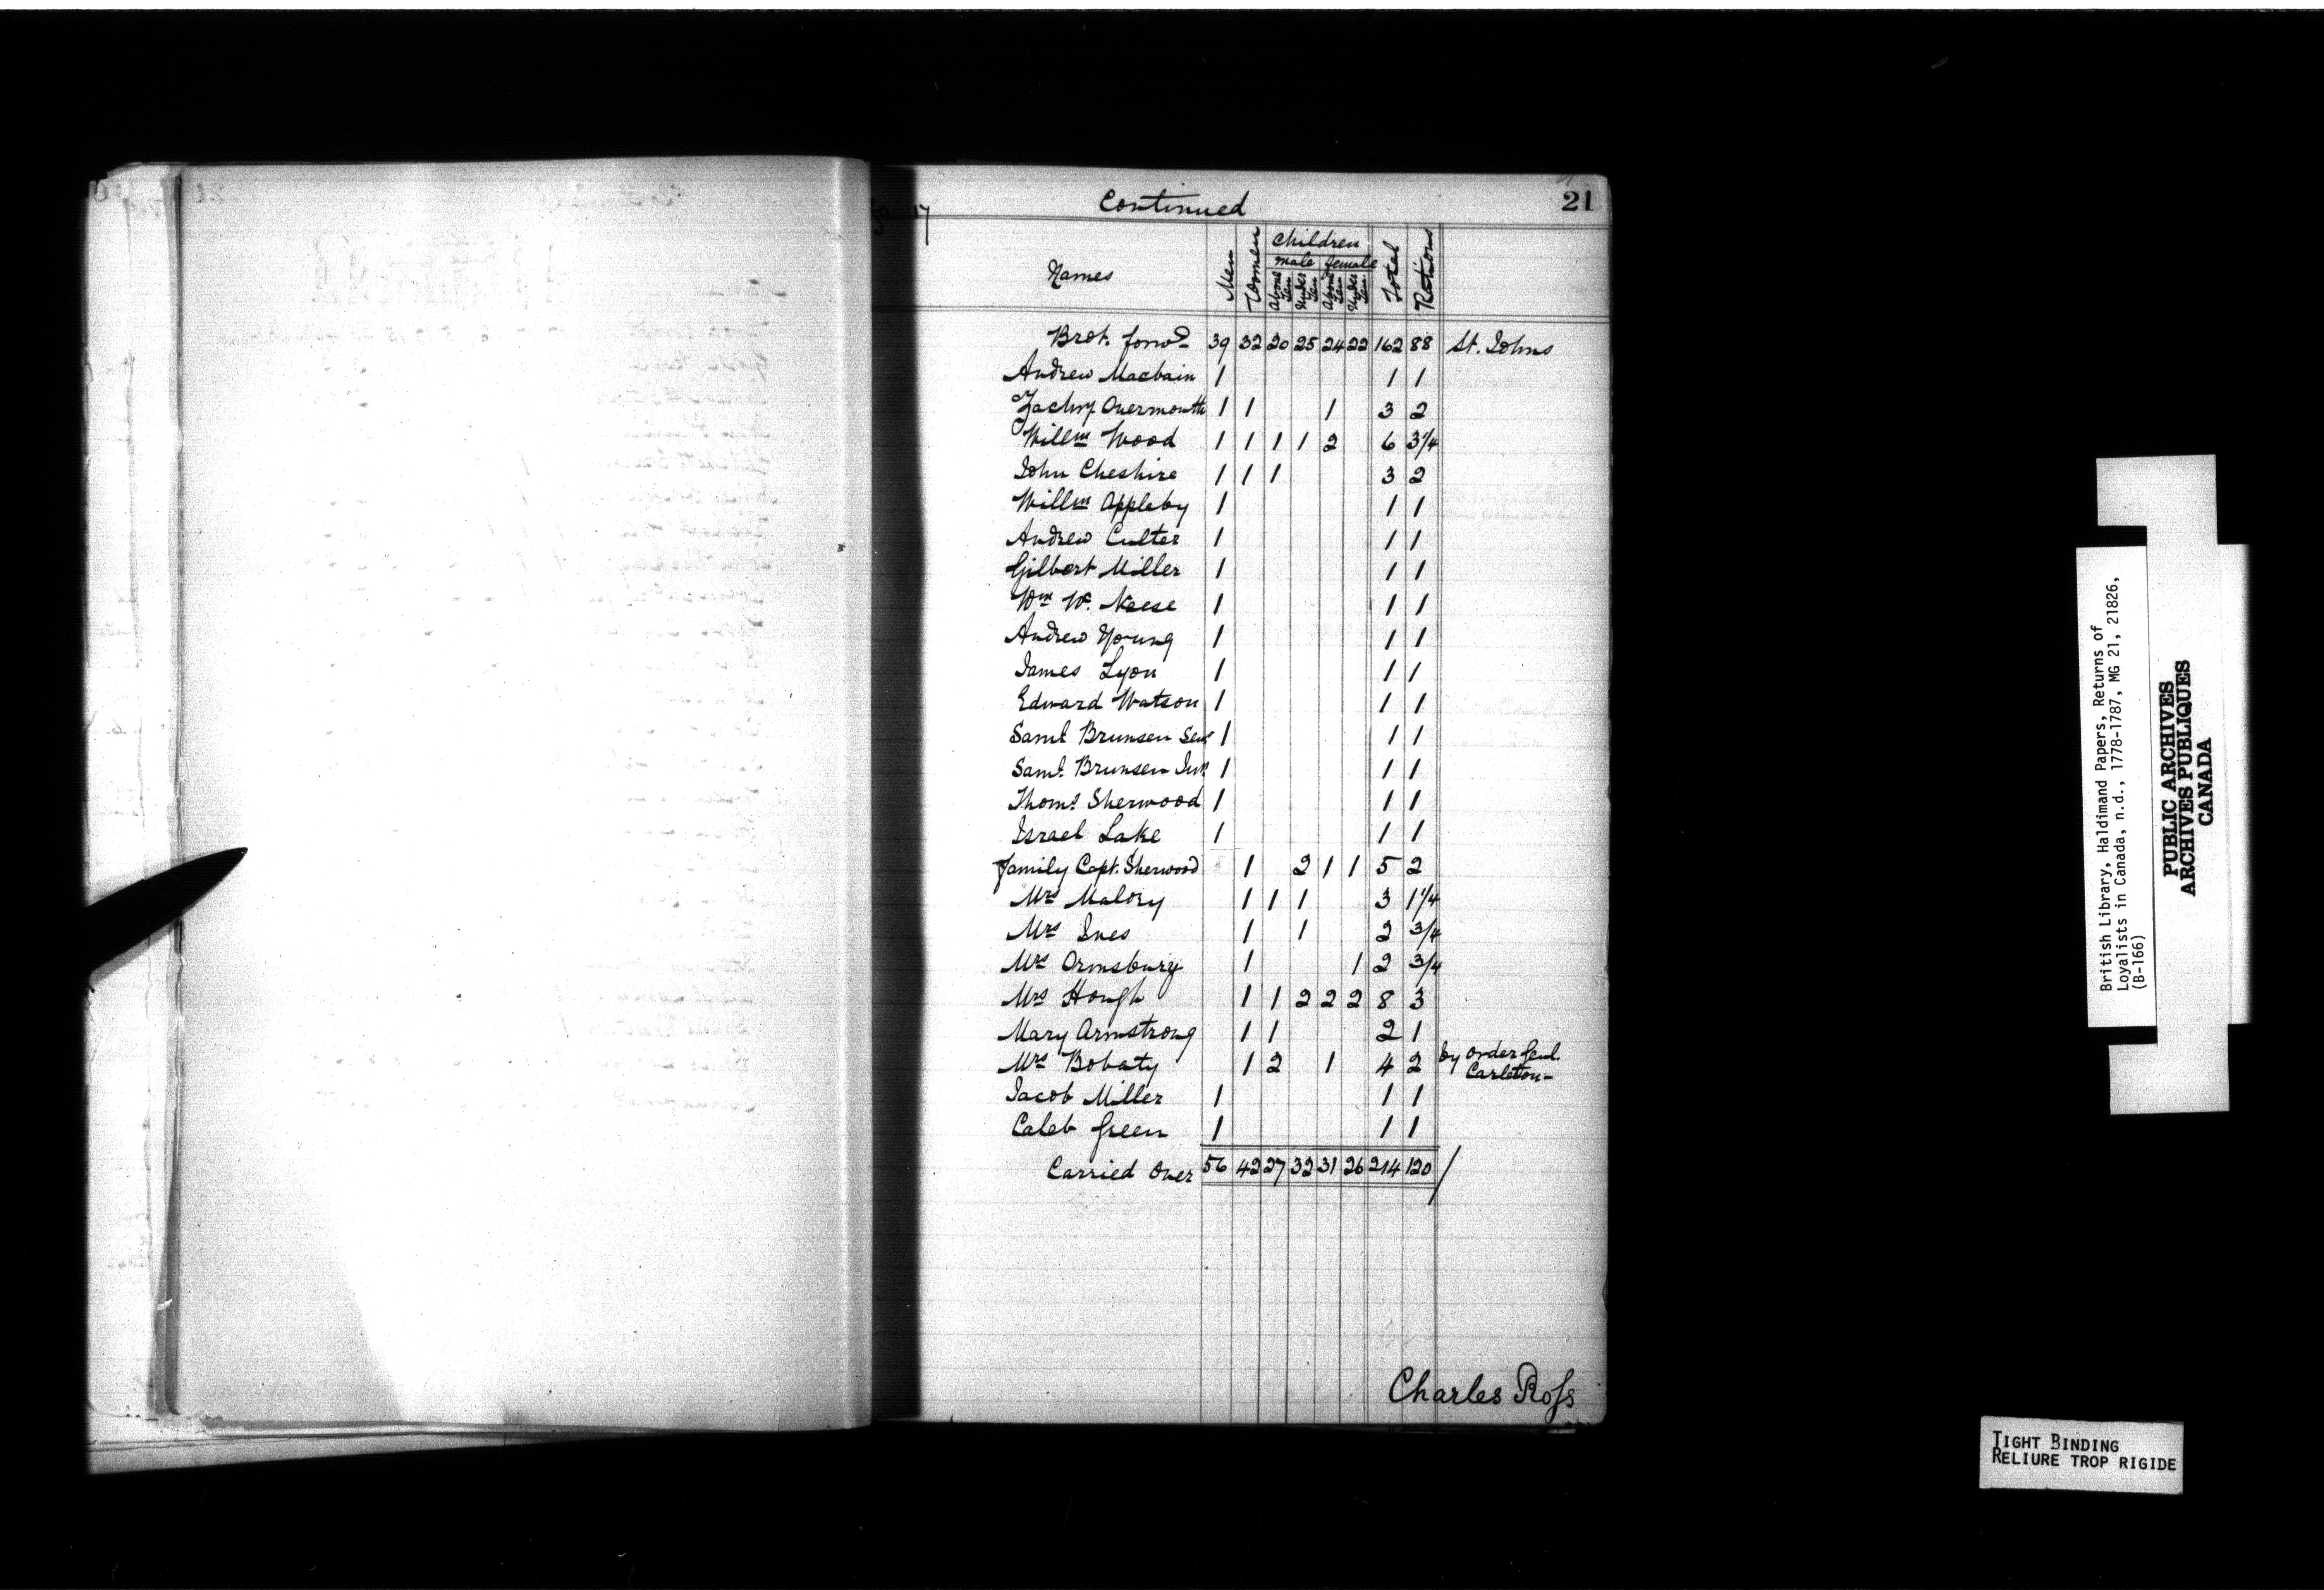 Continued 21
17
Names Men Women Children Total Rations
male female
Above Ten Under Ten Above Ten Under Ten
Brot. forwd 39 32 20 25 24 22 162 88 St. Johns
Andrew Macbain 1 1 1
Zachry. Overmouth 1 1 1 3 2
Willm Wood 1 1 1 1 2 6 3 1/4
John Cheshire 1 1 1 3 2
Willm Appleby 1 1 1
Andrew Culter 1 1 1
Gilbert Miller 1 1 1
Wm W. Neese 1 1 1
Andrew Young 1 1 1
James Lyon 1 1 1
Edward Watson 1 1 1
Saml Brunsen Senr 1 1 1
Saml. Brunsen Junr 1 1 1
Thoms. Sherwood 1 1 1
Israel Lake 1 1 1
Family Capt. Sherwood 1 2 1 1 5 2
Mrs Malory 1 1 1 3 1 1/4
Mrs Ives 1 1 2 3/4
Mrs Ormsbury 1 1 2 3/4
Mrs Hough 1 1 2 2 2 8 3
Mary Armstrong 1 1 2 1
Mrs Bobaty 1 2 1 4 2 by order Genl.
Carleton-
Jacob Miller 1 1 1
Caleb Green 1 1 1
Carried Over 56 42 27 32 31 26 214 120
Charles Ross
British Library, Haldimand Papers, Returns of
Loyalists in Canada, n.d., 1778-1787, MG 21, 21826,
(B-166)
PUBLIC ARCHIVES
ARCHIVES PUBLIQUES
CANADA
TIGHT BINDING
RELIURE TROP RIGIDE